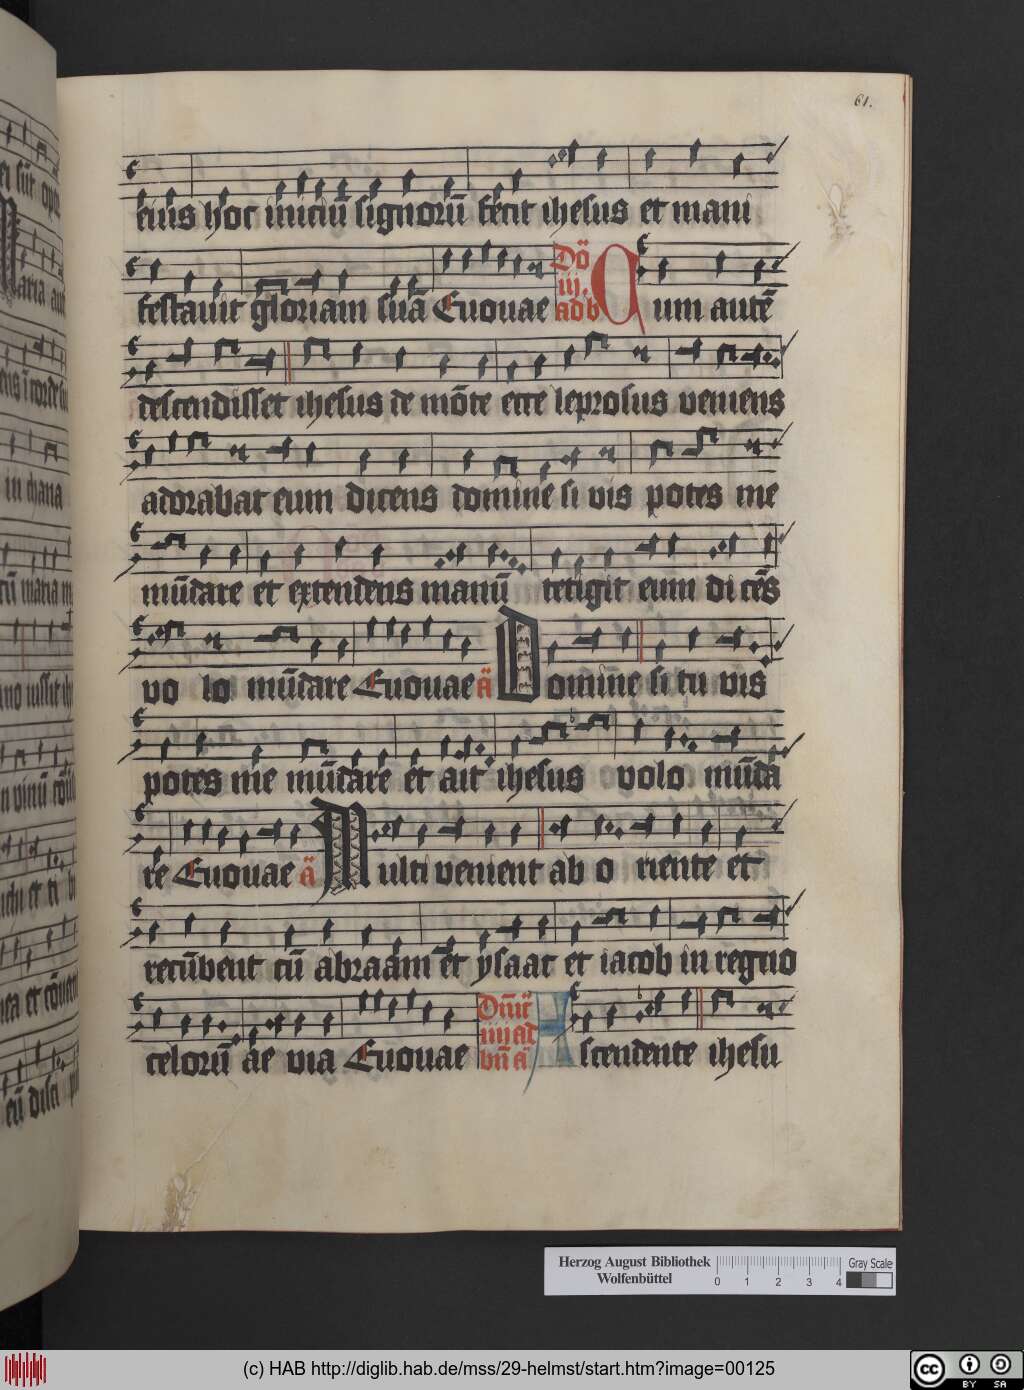 61.
eius hoc iniciū signorū fecit ihesus et mani
festauit gloriam suā Euouae Dō̄ iij. ad b Cum autē
descendisset ihesus de mōte ecce leprosus veniens
adorabat eum dicens domine si vis potes me
mūdare et extendens manū tetigit eum di cēs
vo lo mūdare Euouae ā Domine si tu vis
potes me mūdare et ait ihesus volo mūda
re Euouae ā Multi venient ab o riente et
recūbent cū abraam et ysaac et iacob in regno
celorū ae via Euouae Dnīc iiij ad bn̄ a Ascendente ihesu
Herzog August Bibliothek
Wolfenbüttel
0 1 2 3 4
Gray Scale
(c) HAB http://diglib.hab.de/mss/29-helmst/start.htm?image=00125
cc BY SA